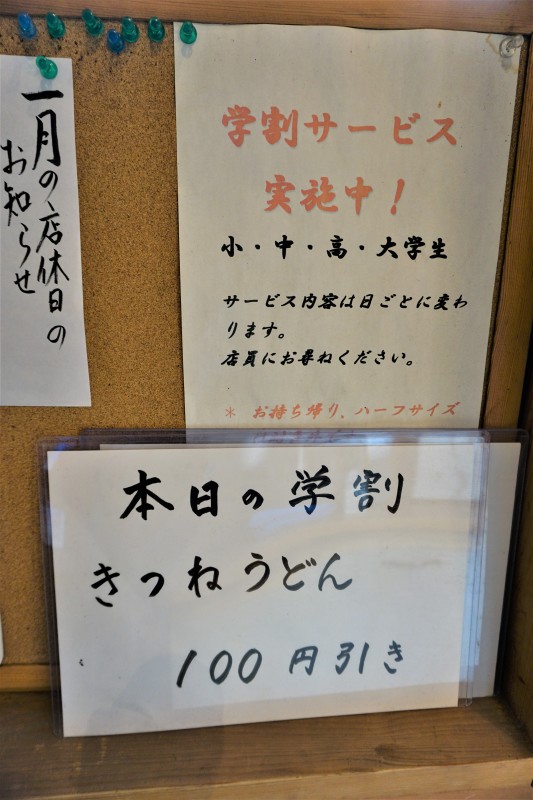 一月の店休日の
お知らせ
学割サービス
実施中！
小・中・高・大学生
サービス内容は日ごとに変わ
ります。
店員にお尋ねください。
＊ お持ち帰り、ハーフサイズ
本日の学割
きつねうどん
100円引き